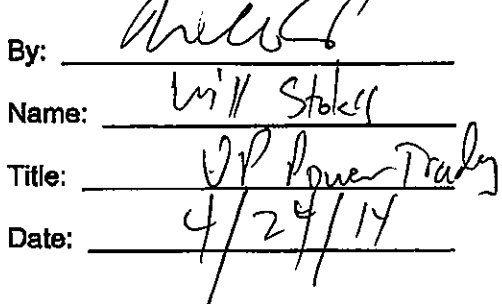 By:
Name: Will Stokes
Title: VP Power Trading
Date: 4/24/14